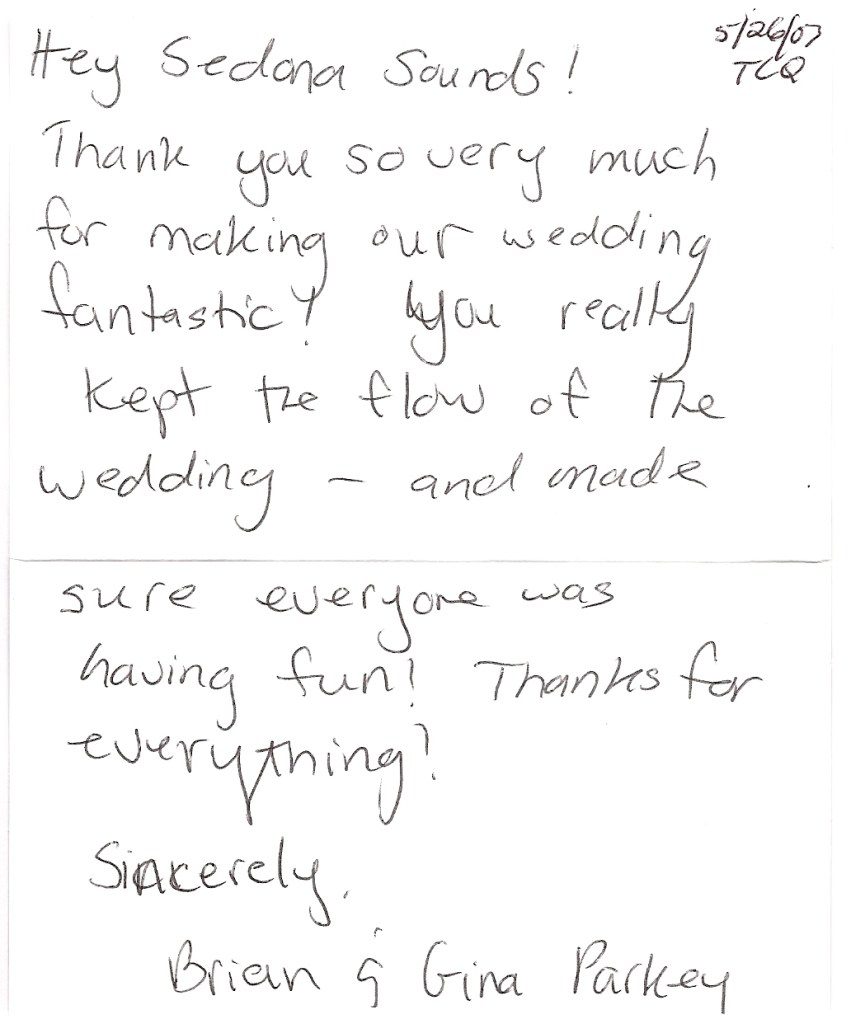 5/26/07
TCQ
Hey Sedona Sounds!
Thank you so very much
for making our wedding
fantastic! You really
kept the flow of the
wedding - and made
sure everyone was
having fun! Thanks for
everything!
Sincerely,
Brian & Gina Parkey